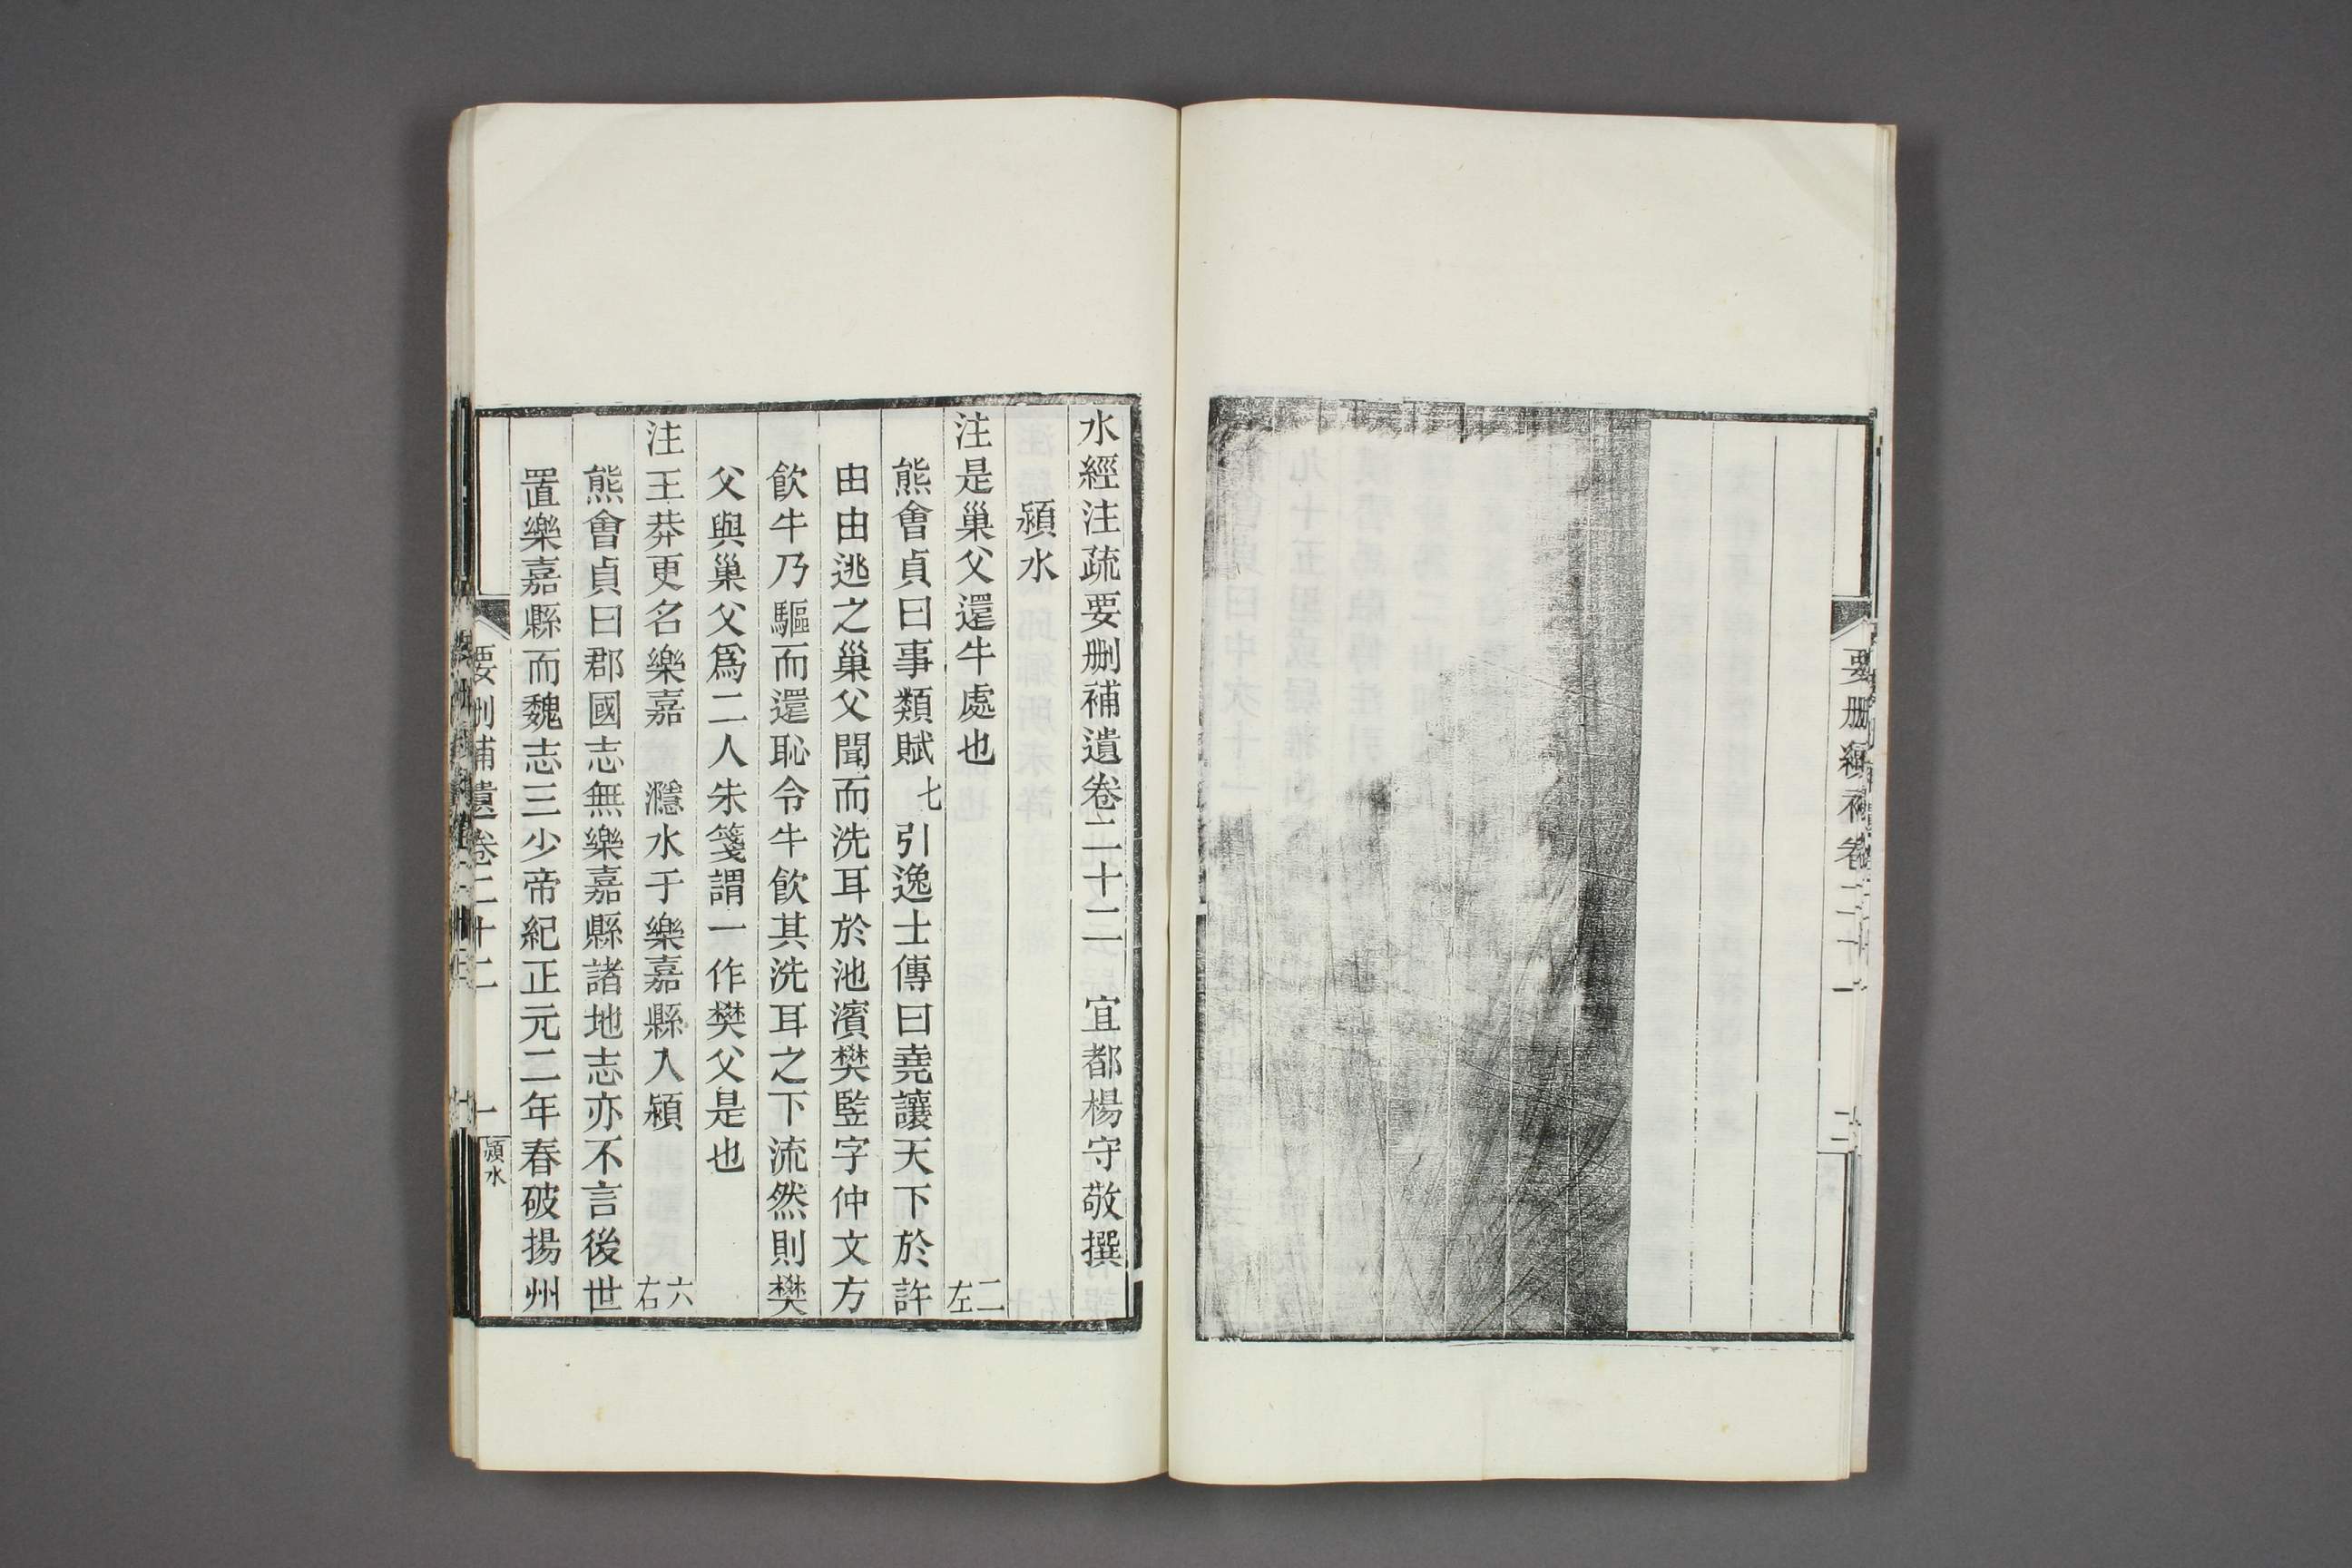 要删續補卷二十一
二
水經注疏要删補遺卷二十二　宜都楊守敬撰
潁水
注是巢父還牛處也　二左
熊會貞曰事類賦七引逸士傳曰堯讓天下於許
由由逃之巢父聞而洗耳於池濱樊監字仲文方
飲牛乃驅而還恥令牛飲其洗耳之下流然則樊
父與巢父爲二人朱箋謂一作樊父是也
注王莽更名樂嘉　㶏水于樂嘉縣入潁　六右
熊會貞曰郡國志無樂嘉縣諸地志亦不言後世
置樂嘉縣而魏志三少帝紀正元二年春破揚州
要删補遺卷二十二
一
潁水